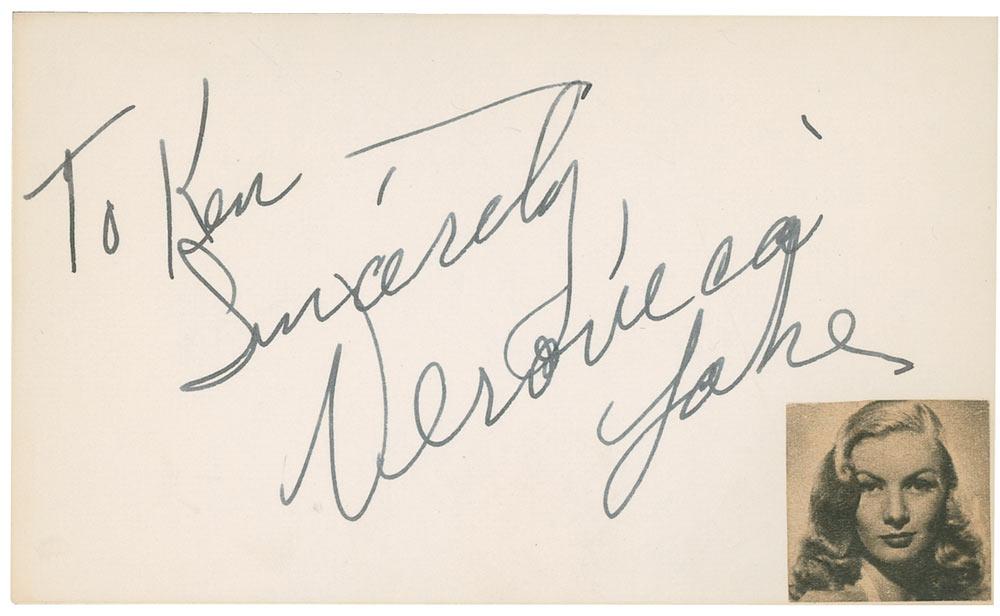 To Ken
Sincerely
Veronica
Lake